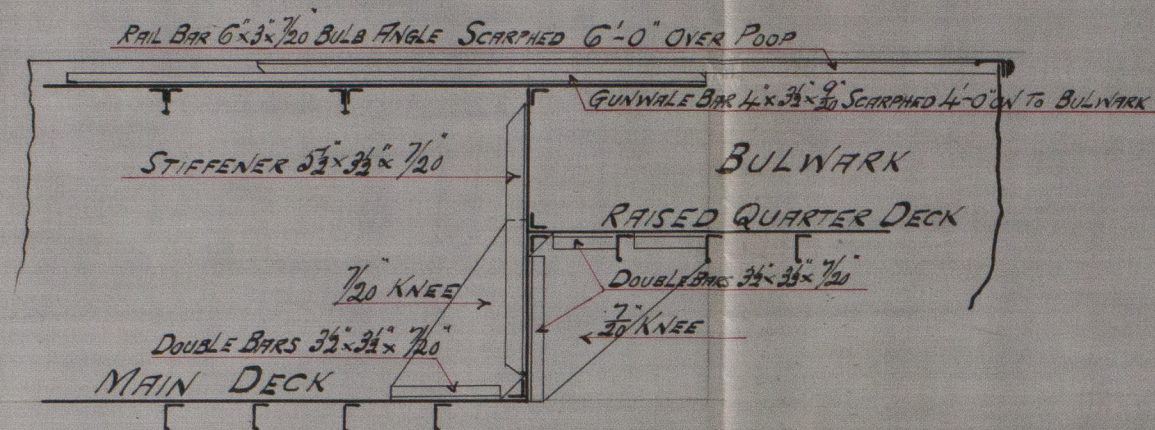 RAIL BAR 6"x3"x7/20" BULB ANGLE SCARPHED 6'-0" OVER POOP
GUNWALE BAR 4"x3½"x9/20" SCARPHED 4'-0" ON TO BULWARK
STIFFENER 5½"x3½"x7/20"
BULWARK
RAISED QUARTER DECK
7/20" KNEE
DOUBLE BARS 3½"x3½"x7/20"
7/20" KNEE
DOUBLE BARS 3½"x3½"x7/20"
MAIN DECK